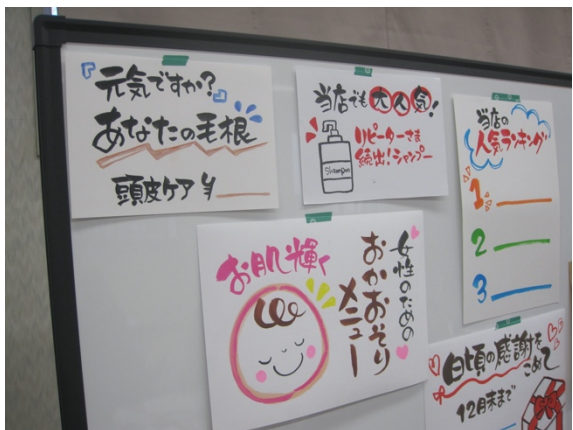 『元気ですか?』
あなたの毛根
頭皮ケア ¥
当店でも大人気!
リピーターさま
続出!シャンプー
Shampoo
当店の
人気ランキング
1.
2
3
お肌輝く
女性のための
おかおそり
メニュー
日頃の感謝を
こめて
12月末まで